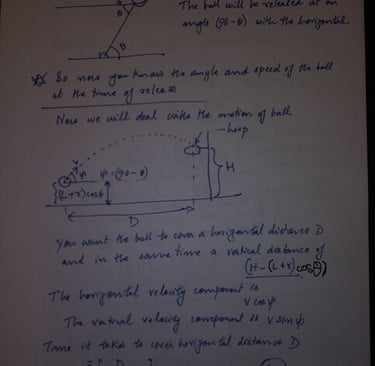 The ball will be released at an
angle (90-θ) with the horizontal.
θ
θ
So now you know the angle and speed of the ball
at the time of release
Now we will deal with the motion of ball
hoop
v
ψ ψ=(90-θ)
(L+r)cosθ
H
D
You want the ball to cover a horizontal distance D
and in the same time a vertical distance of
(H-(L+r)cosθ)
The horizontal velocity component is
v cosψ
The vertical velocity component is v sinψ
Time it take to cover horizontal distance D